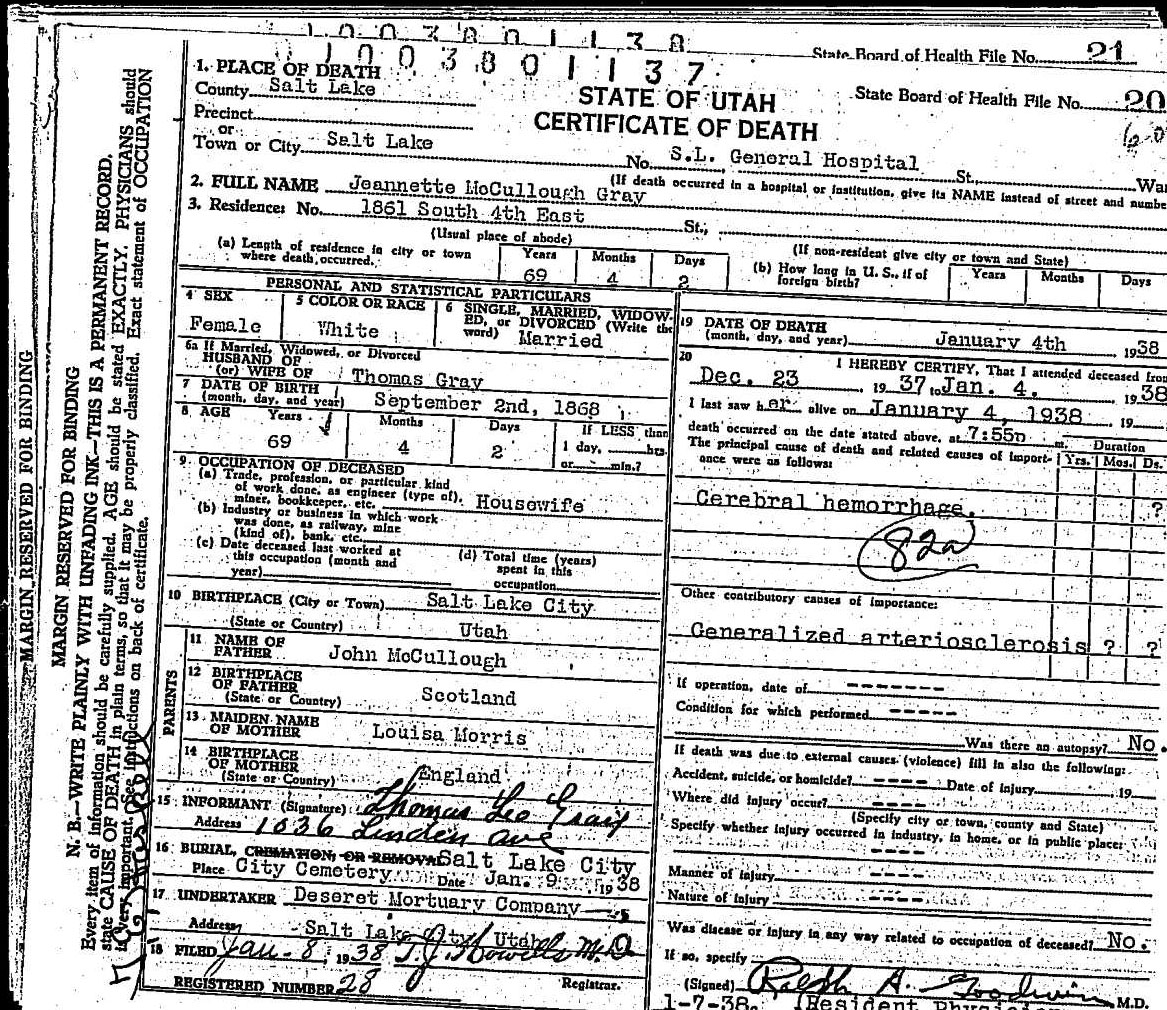 1003801138
State Board of Health File No. 21
1003801137
1. PLACE OF DEATH
County Salt Lake
STATE OF UTAH
State Board of Health File No. 20
Precinct
CERTIFICATE OF DEATH
or
Town or City Salt Lake No. S.L. General Hospital St. War
(If death occurred in a hospital or institution, give its NAME instead of street and numbe
2. FULL NAME Jeannette McCullough Gray
3. Residence: No. 1861 South 4th East St.,
(Usual place of abode) (If non-resident give city or town and State)
(a) Length of residence in city or town where death occurred. Years 69 Months 4 Days 2
(b) How long in U. S., if of foreign birth? Years Months Days
PERSONAL AND STATISTICAL PARTICULARS
4 SEX Female
5 COLOR OR RACE White
6 SINGLE, MARRIED, WIDOWED, or DIVORCED (Write the word) Married
6a If Married, Widowed, or Divorced
HUSBAND OF
(or) WIFE OF Thomas Gray
7 DATE OF BIRTH
(month, day, and year) September 2nd, 1868
8 AGE Years Months Days If LESS than
69 4 2 1 day, hrs.
or min.?
9 OCCUPATION OF DECEASED
(a) Trade, profession, or particular kind
of work done, as engineer (type of),
miner, bookkeeper, etc. Housewife
(b) Industry or business in which work
was done, as railway, mine
(kind of), bank, etc.
(c) Date deceased last worked at
this occupation (month and
year)
(d) Total time (years)
spent in this
occupation
10 BIRTHPLACE (City or Town) Salt Lake City
(State or Country) Utah
PARENTS
11 NAME OF
FATHER John McCullough
12 BIRTHPLACE
OF FATHER
(State or Country) Scotland
13 MAIDEN NAME
OF MOTHER Louisa Morris
14 BIRTHPLACE
OF MOTHER
(State or Country) England
15 INFORMANT (Signature) Thomas Leo Gray
Address 1036 Linden Ave
16 BURIAL, CREMATION, OR REMOVAL Salt Lake City
Place City Cemetery Date Jan. 9 1938
17 UNDERTAKER Deseret Mortuary Company
Address Salt Lake City Utah
18 FILED Jan. 8, 1938 T.J. Howells M.D
REGISTERED NUMBER 28 Registrar.
19 DATE OF DEATH
(month, day, and year) January 4th 1938
20 I HEREBY CERTIFY, That I attended deceased from
Dec. 23 1937 to Jan. 4. 1938
I last saw her alive on January 4, 1938 19
death occurred on the date stated above, at 7:55p m.
The principal cause of death and related causes of import-
ance were as follows:
Duration
Yrs. Mos. Ds.
Cerebral hemorrhage. ?
82a
Other contributory causes of importance:
Generalized arteriosclerosis ? ?
If operation, date of -------
Condition for which performed -----
Was there an autopsy? No.
If death was due to external causes (violence) fill in also the following:
Accident, suicide, or homicide? ---- Date of injury 19
Where did injury occur? ----
(Specify city or town, county and State)
Specify whether injury occurred in industry, in home, or in public place:
----
Manner of injury ----
Nature of injury ----
Was disease or injury in any way related to occupation of deceased? No.
If so, specify
(Signed) Ralph A. Goodwin M.D.
1-7-38. (Resident Physician
MARGIN RESERVED FOR BINDING
MARGIN RESERVED FOR BINDING
N. B.—WRITE PLAINLY WITH UNFADING INK—THIS IS A PERMANENT RECORD.
Every item of information should be carefully supplied. AGE should be stated EXACTLY. PHYSICIANS should
state CAUSE OF DEATH in plain terms, so that it may be properly classified. Exact statement of OCCUPATION
is very important. See instructions on back of certificate.